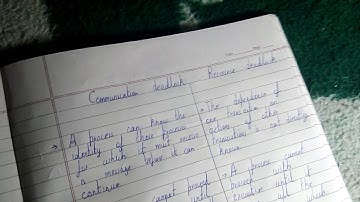 Communication deadlock
Resource deadlock
→ A process can know the
identity of those process
for which it must receive
a message before it can
continue
• The dependence of
one transaction on
actions of other
transaction's not directly
known.
cannot proceed
until
• A process cannot
proceed with
execution until it
all the
which